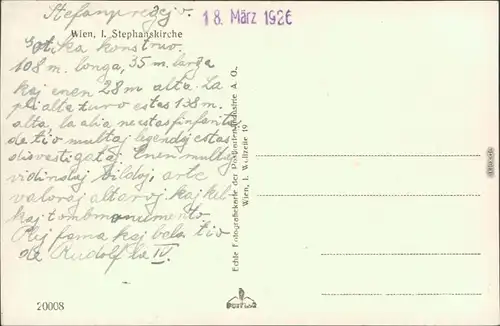 Stefanpregejo.
18. März 1926
Wien, I. Stephanskirche
gotika konstruo.
108 m. longa, 35 m. larĝa
kaj enen 28 m alta. La
pli alta turo estas 138 m.
alta, la alia ne estas finfarita,
de tio multaj legendoj estas
disvastigataj. Enen multaj
vidindaj bildoj, arte
valoraj altaroj kaj kel
kaj tombmonumento
Plej fama kaj bela tio
de Rudolf la IV.
Echte Fotografiekarte der Postkartenindustrie A. G.,
Wien, I. Wollzeile 19
20008